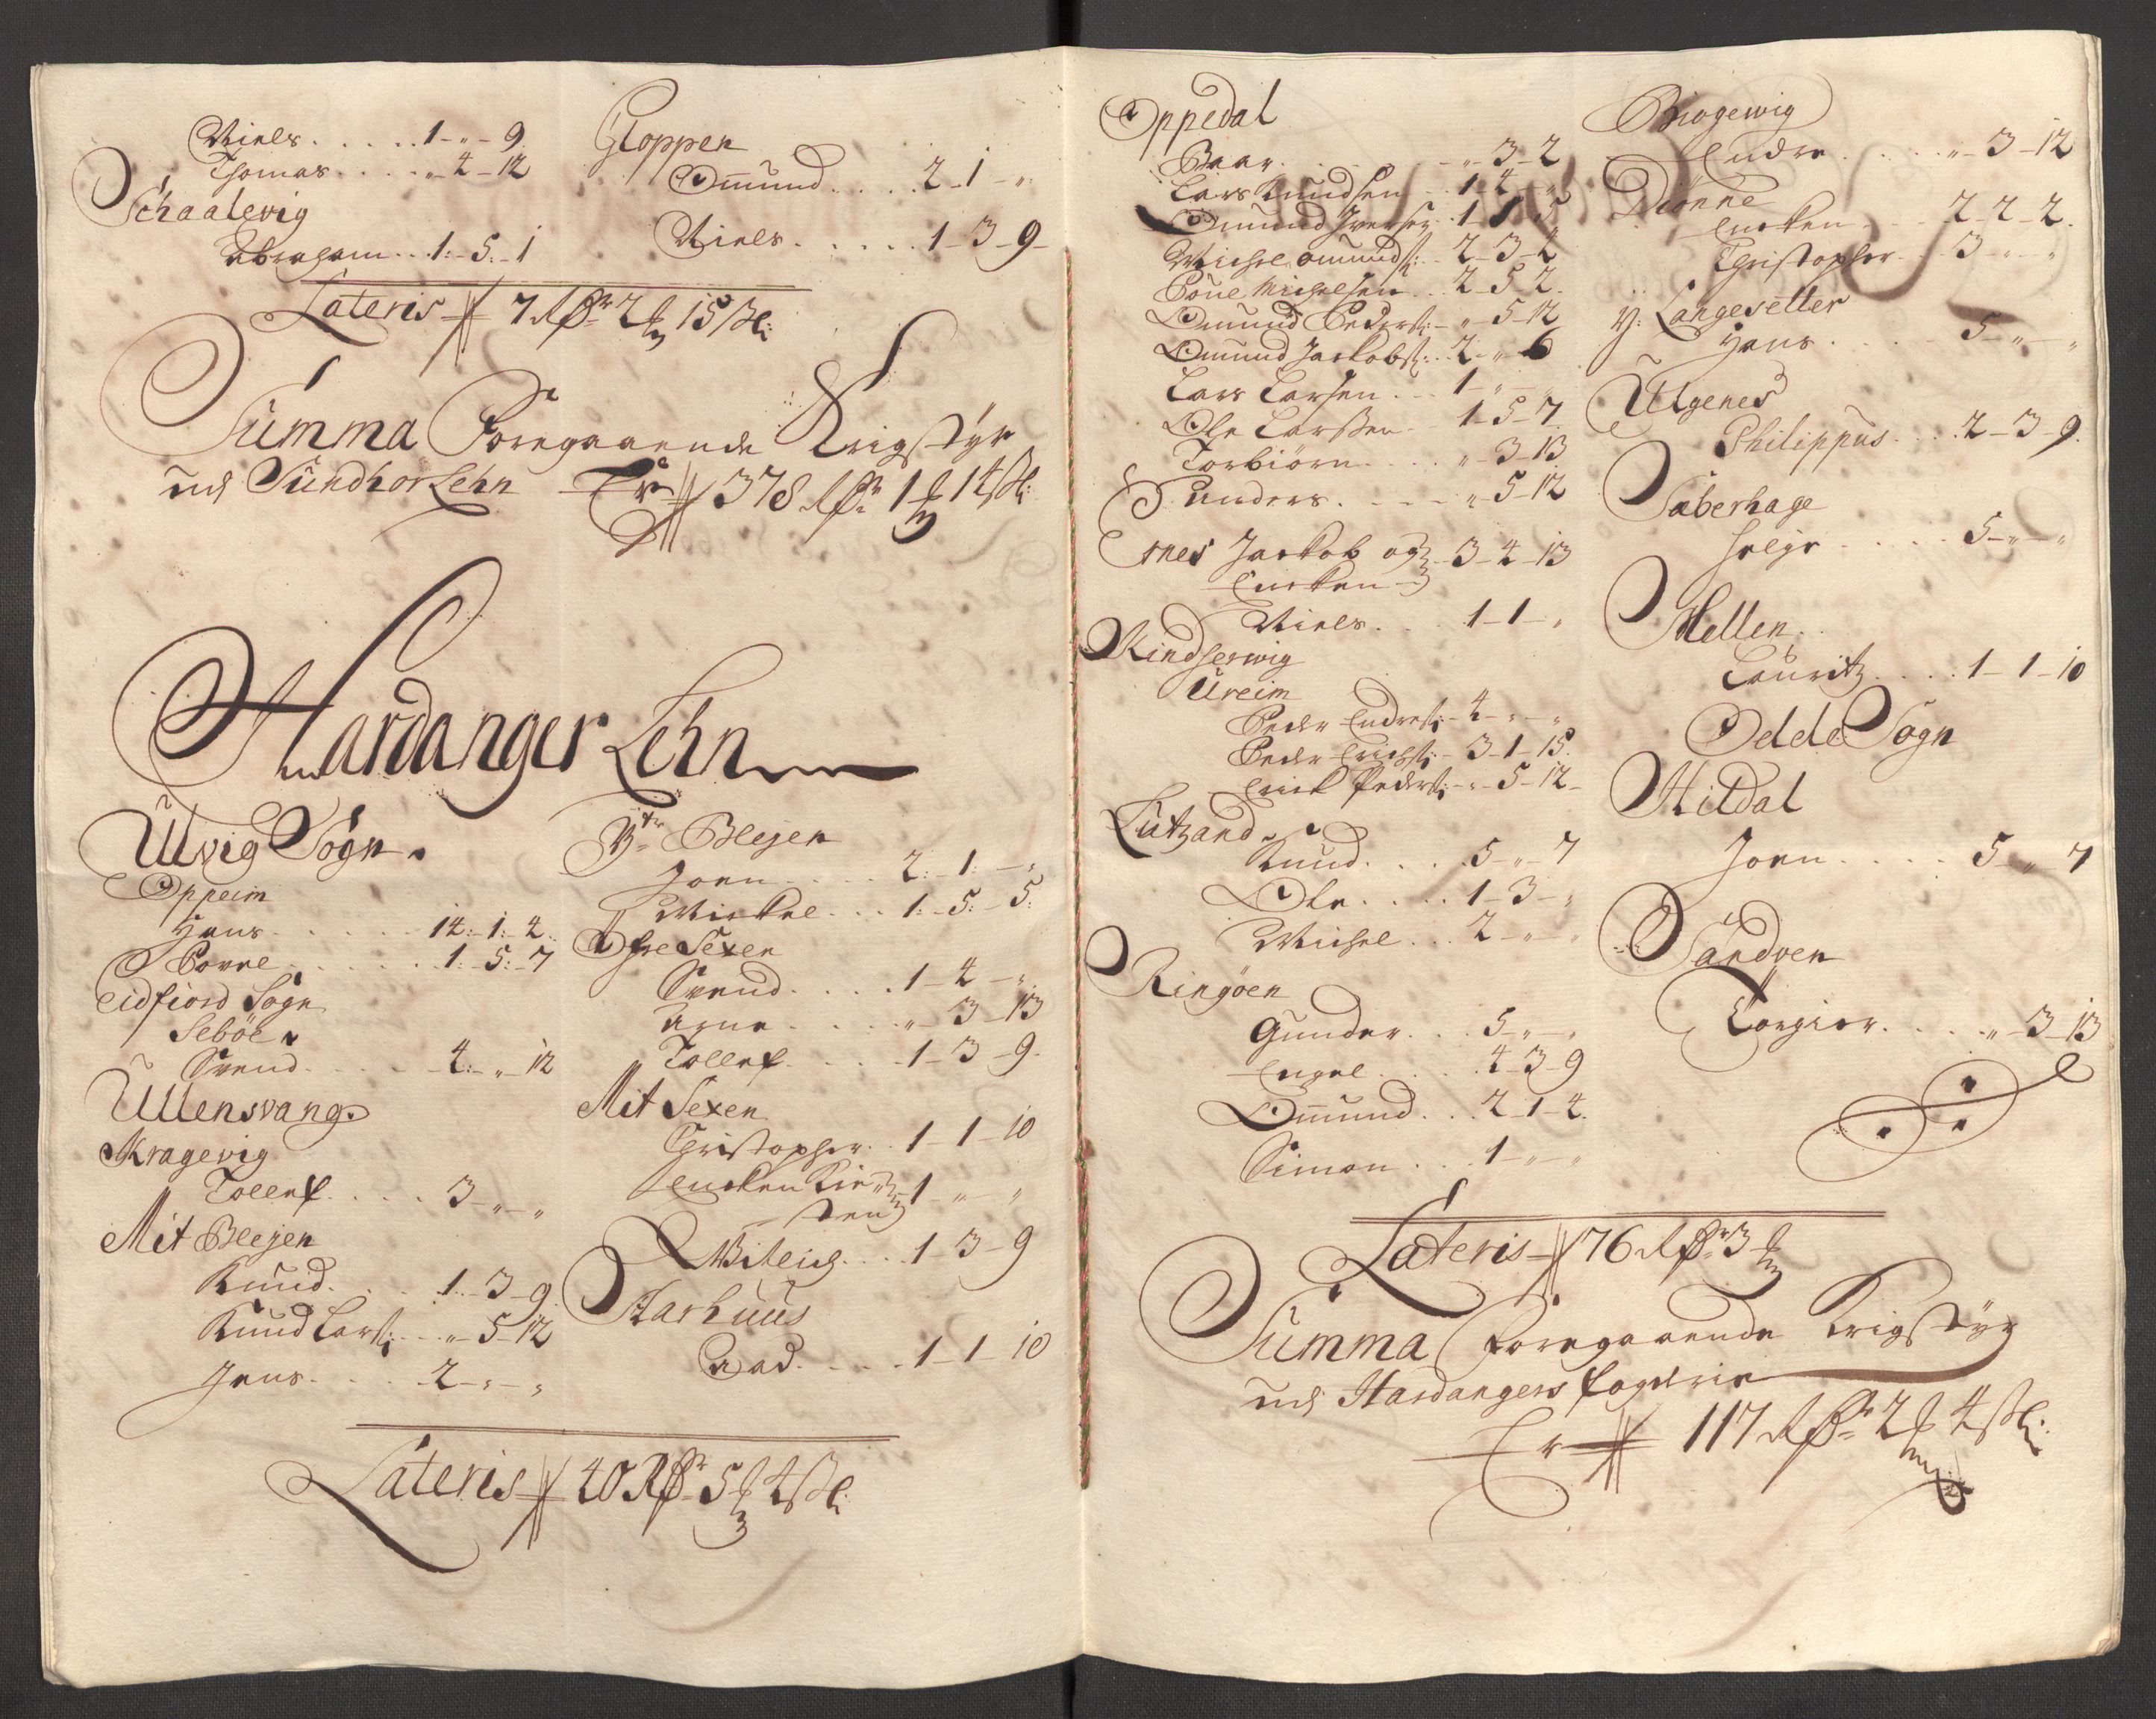 Niels. . . . . 1 - „ - 9
Thomas. . . . „ - 4 - 12
Schaalevig
Abraham. . 1: - 5: - 1
Gloppen
Omund. . . . 2 - 1 - „
Niels. . . . . 1 - 3 - 9 -
Lateris 7 Rdr 2 15 ßl:
Summa Foregaaende Krigstyr
ud Sundhorlehn Er 378 Rdr 1 14 ßl:
Hardanger Lehn
Ulvig Sogn.
Oppeim
Hans . . . . 14: - 1: - 2
Povel . . . . 1: - 5: - 7
Eidfiord Sogn
Seböe
Svend. . . . 4: - „ - 12
Ullensvang
Kragevig
Tollef. . . . 3 - „ - „
Mit Blejen
Knud. . . . 1 - 3 - 9
Knud Lars: . . „ - 5 - 12
Jens. . . . 2 - „ - „
Yt: Blejen
Joen . . . . 2: - 1: - „
Mickel . . . 1: - 5: - 5:
Øfre Sexen
Svend. . . . 1 - 4 - „
Arne . . . . „ - 3 - 13
Tollef. . . . 1 - 3 - 9 -
Mit Sexen
Christopher . . 1 - 1 - 10
Encken Kir-
sten 1 - „ - „
Willich. . . 1 - 3 - 9
Aarhuus
Aad. . . . . 1 - 1 - 10
Lateris 40 Rdr 5 4 ßl:
Oppedal
Baar . . . . „ - 3 - 2
Lars Knudsen . . 1 - 4 - „
Omund Iversen . 1 - 1 - 5
Michel Omunds: . 2 - 3 - 2
Poue Michelsen . . 2 - 5 - 2
Omund Peders: - „ - 5 - 12
Omund Jackobs: . . 2 - „ - 6
Lars Larsen . . 1 - „ - „
Ole Larssen . . 1 - 5 - 7
Torbiörn . . . . „ - 3 - 13
Anders. . . . . „ - 5 - 12
Ernes Jackob og - 3 - 4 - 13
Encken
Niels. . . 1 - 1 - „
Kindserwig
Ureim
Peder Endres: - 4 - „ - „
Peder Erichs: - 3 - 1 - 15.
Erick Peders: - „ - 5 - 12 -
Lutzand
Knud. . . . 5 - „ - 7
Ole. . . . . 1 - 3 - „
Michel . . . 2 - „ - „
Ringöen
Gunder. . . 5 - „ - „
Engel . . . . 4 - 3 - 9
Omund. . . 2 - 1 - 4.
Simon . . . 1 - „ - „
Biogewig
Endre . . . . „ - 3 - 12
Diönne
Encken . . . 2 - 2 - 2.
Christopher. . . 3 - „ - „
Y: Langesetter
Hans . . . . 5 - „ - „
Utgenes
Philippus. . . . 2 - 3 - 9.
Saberhage
Helge . . . . . 5 - „ - „
Mellen
Lauritz. . . . 1 - 1 - 10
Odde Sogn
Hildal
Joen . . . . . 5 - „ - 7
Sandven
Torgier. . . . . „ - 3 - 13
Lateris 76 Rdr 3
Summa foregaaende Krigstyr
ud Hardangers fogderie
Er 117 Rdr 2 4 ßl: